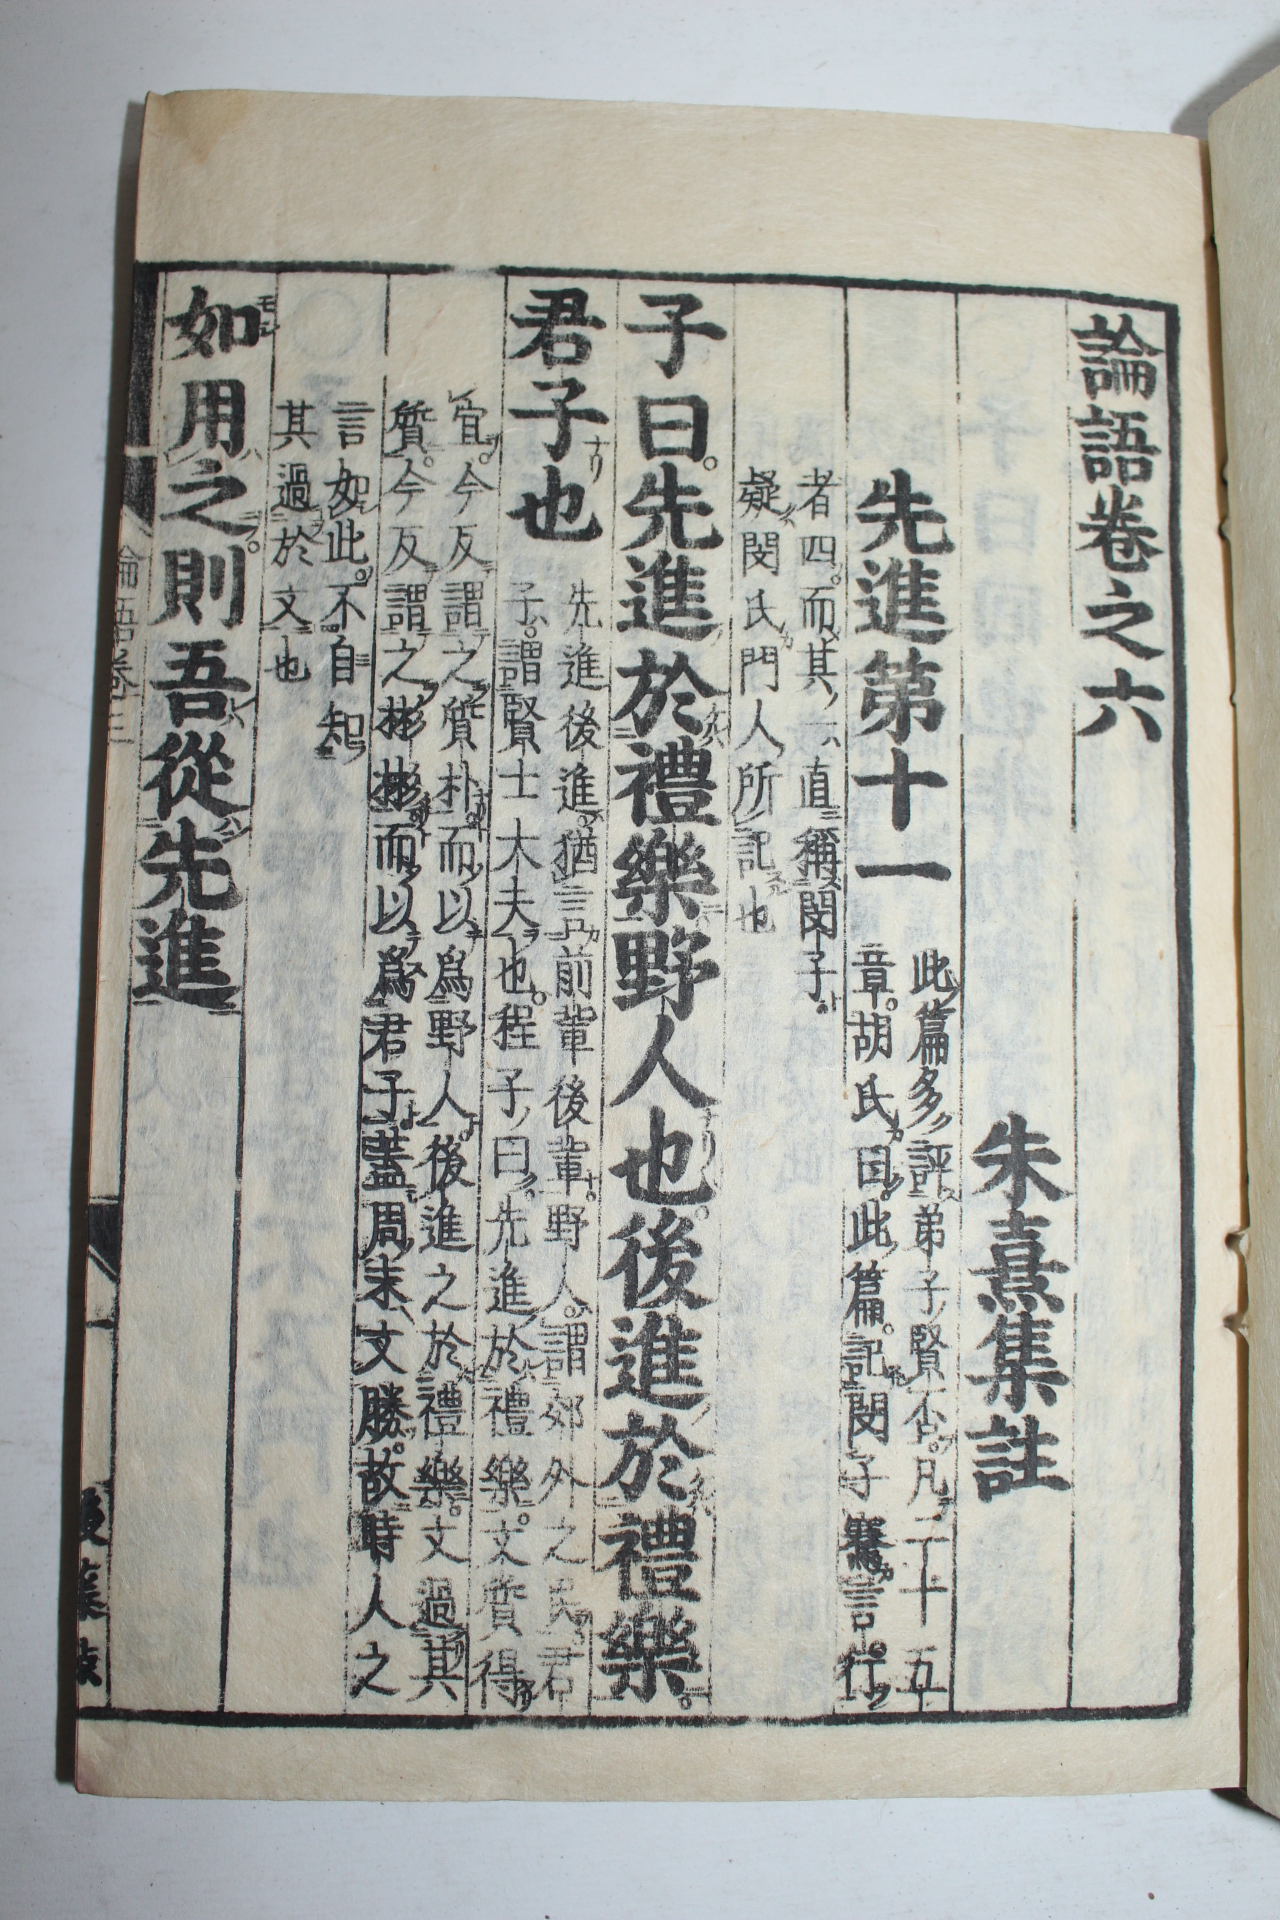 論語卷之六
朱熹集註
先進第十一
此篇多評弟子賢否。凡二十五
章。胡氏曰。此篇。記閔子騫言。行
者四。而其一直稱閔子。
疑閔氏門人所記也
子曰。先進於禮樂野人也。後進於禮樂。
君子也
先進後進。猶言前輩後輩。野人。謂郊外之民。君
子。謂賢士大夫也。程子曰。先進於禮樂。文質得
宜。今反謂之質朴而以爲野人。後進之於禮樂。文過其
質。今反謂之彬彬而以爲君子。蓋周末文勝。故時人之
言如此。不自知
其過於文也
如用之則吾從先進
論語卷三
一
後藤點